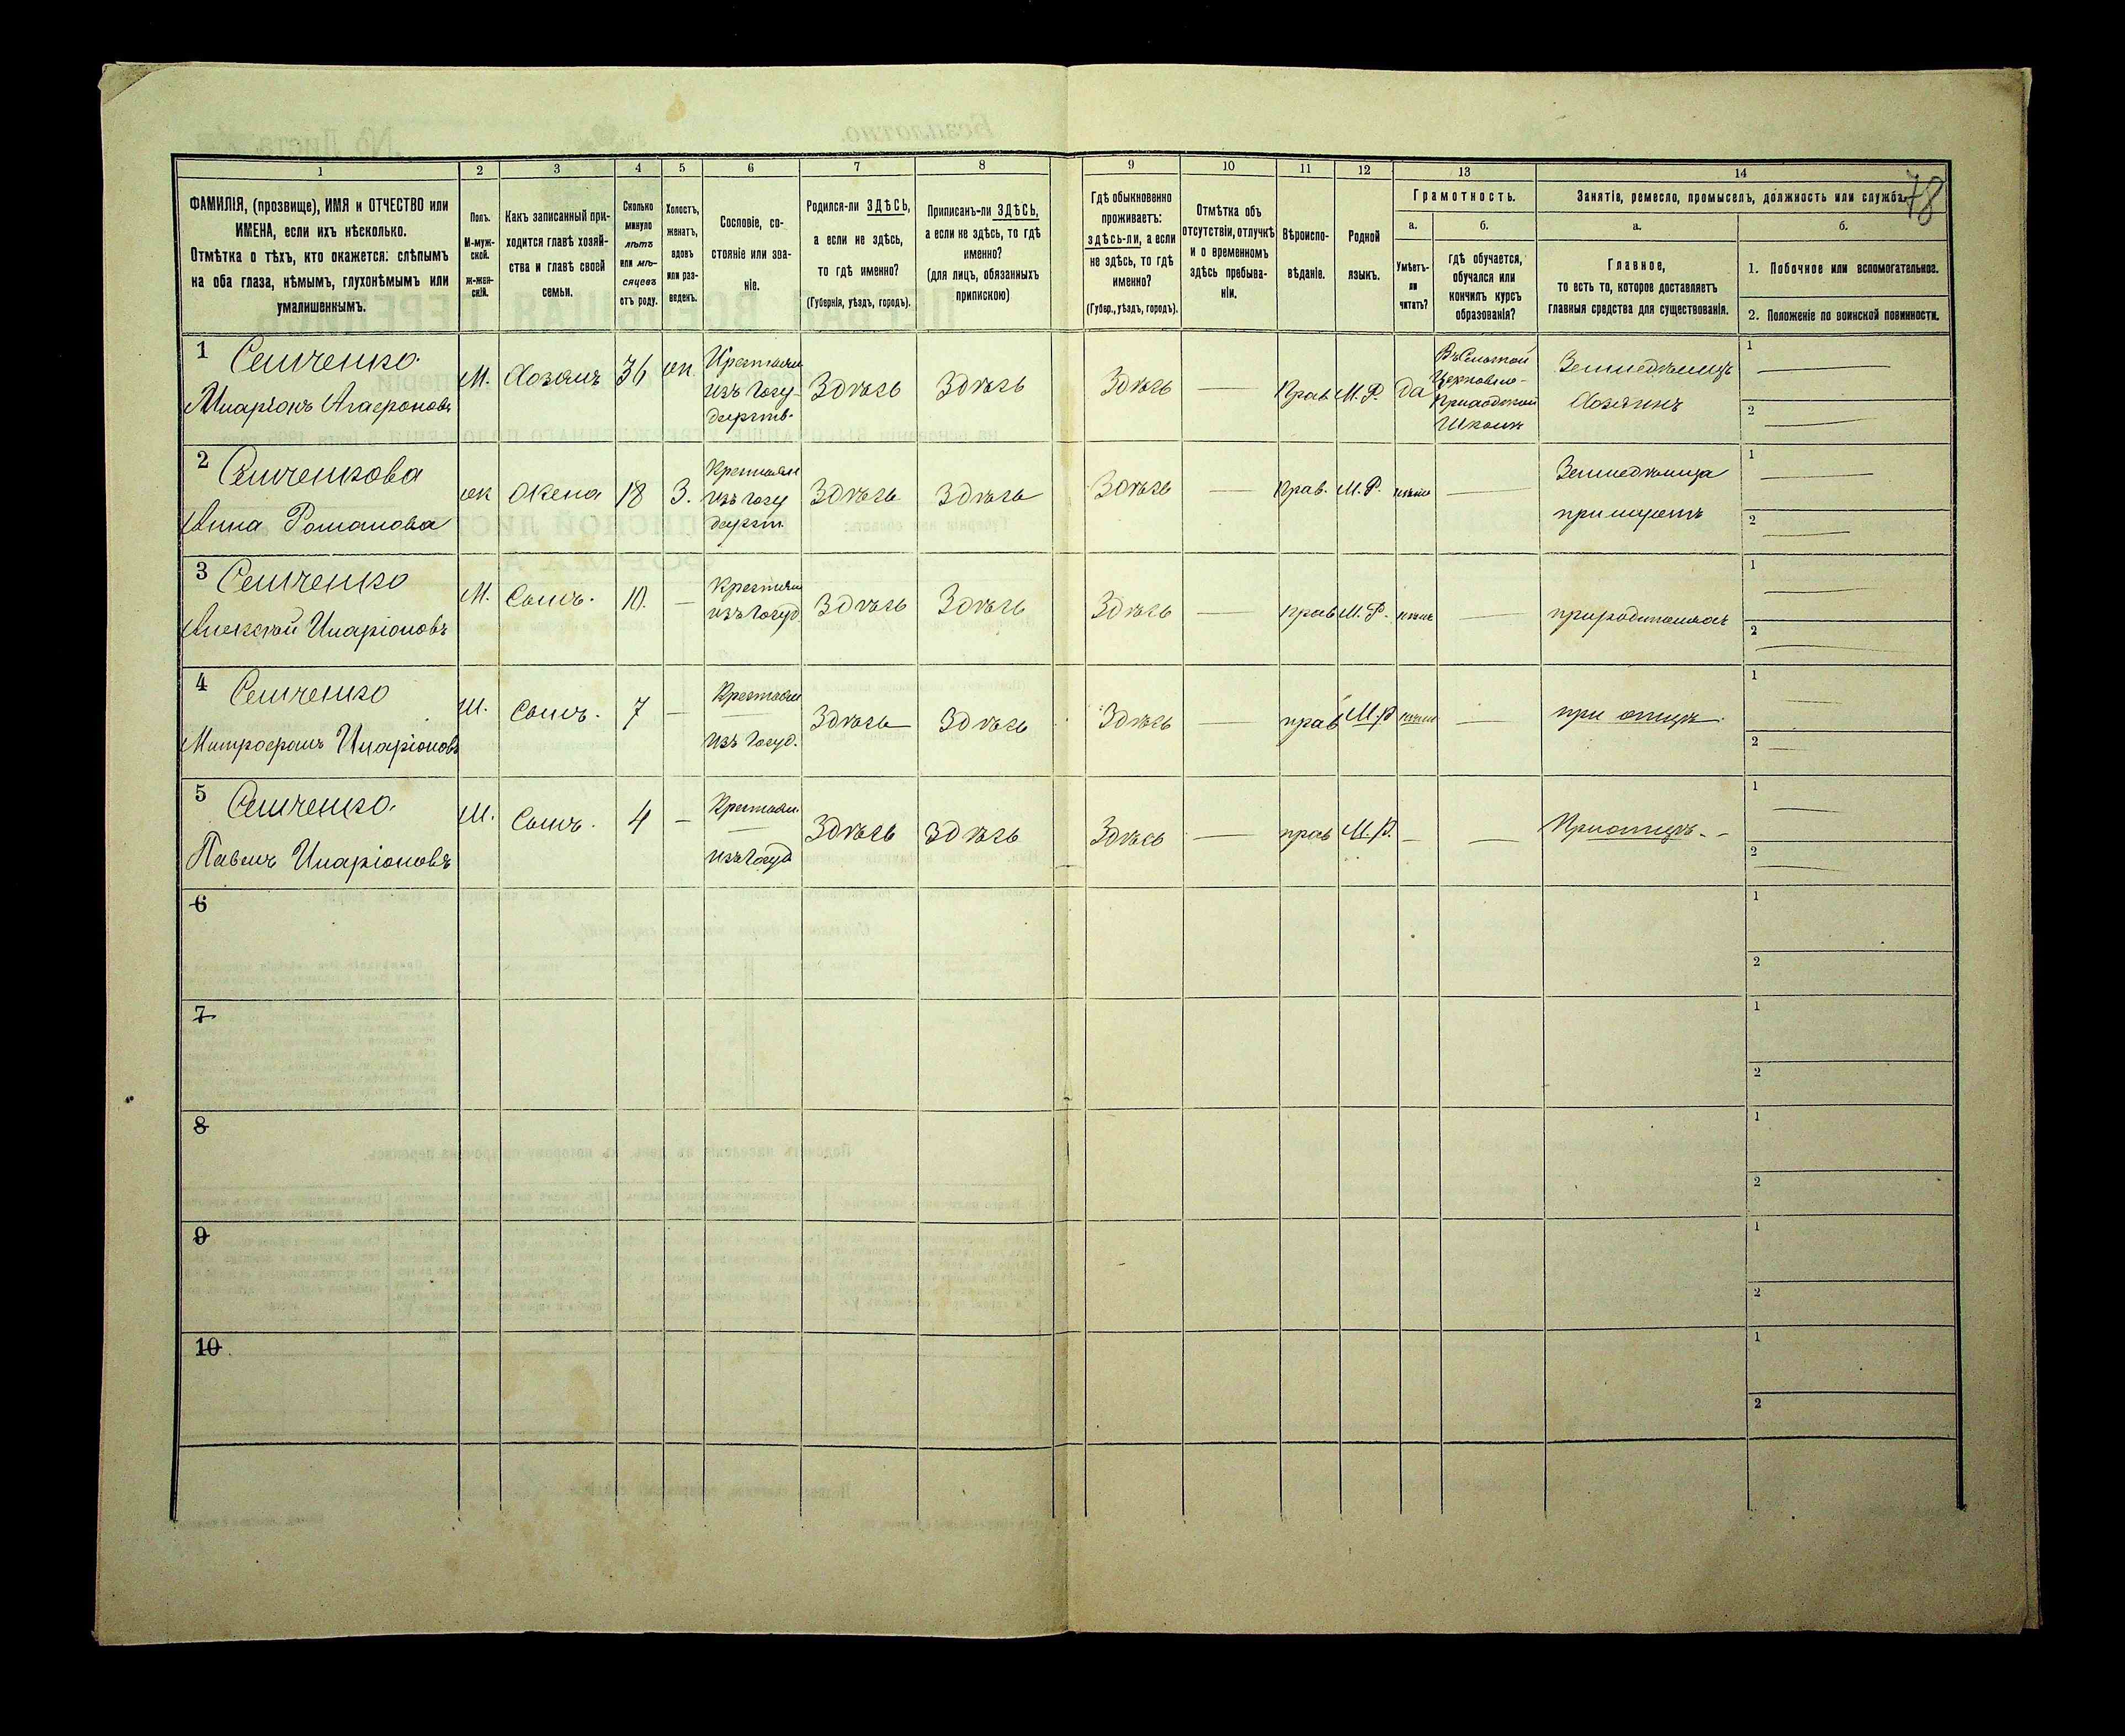 78
1
2
3
4
5
6
7
8
9
10
11
12
13
14
ФАМИЛІЯ, (прозвище), ИМЯ и ОТЧЕСТВО или
ИМЕНА, если ихъ нѣсколько.
Отмѣтка о тѣхъ, кто окажется: слѣпымъ
на оба глаза, нѣмымъ, глухонѣмымъ или
умалишеннымъ.
Полъ.
М-муж-
ской.
Ж-жен-
скій.
Какъ записанный при-
ходится главѣ хозяй-
ства и главѣ своей
семьи.
Сколько
минуло
лѣтъ
или мѣ-
сяцевъ
отъ роду.
Холостъ,
женатъ,
вдовъ
или раз-
веденъ.
Сословіе, со-
стояніе или зва-
ніе.
Родился-ли ЗДѢСЬ,
а если не здѣсь,
то гдѣ именно?
(Губернія, уѣздъ, городъ).
Приписанъ-ли ЗДѢСЬ,
а если не здѣсь, то гдѣ
именно?
(для лицъ, обязанныхъ
припискою)
Гдѣ обыкновенно
проживаетъ:
здѣсь-ли, а если
не здѣсь, то гдѣ
именно?
(Губер., уѣздъ, городъ).
Отмѣтка объ
отсутствіи, отлучкѣ
и о временномъ
здѣсь пребыва-
ніи.
Вѣроиспо-
вѣданіе.
Родной
языкъ.
Грамотность.
а.
Умѣетъ-
ли
читать?
б.
гдѣ обучается,
обучался или
кончилъ курсъ
образованія?
Занятіе, ремесло, промыселъ, должность или служба.
а.
Главное,
то есть то, которое доставляетъ
главныя средства для существованія.
б.
1. Побочное или вспомогательное.
2. Положеніе по воинской повинности.
1 Семченко
Иларіонъ Агафоновъ
М.
Хозяинъ
36
Крестьян
изъ Госу-
дарств.
Здѣсь
Здѣсь
Здѣсь
Прав.
М. Р.
да
Въ Сельской
Церковно-
Приходской
Школѣ
Земледѣлецъ
Хозяинъ
1
2
2 Семченкова
Анна Романова
ж
Жена
З.
Крестьян
изъ Госу
дарст.
Здѣсь
Здѣсь
Здѣсь
Прав.
М. Р.
нѣтъ
Земледѣлица
при мужѣ
1
2
3 Семченко
Алексѣй Иларіоновъ
М.
Сынъ.
10.
Крестьян
изъ Госуд.
Здѣсь
Здѣсь
Здѣсь
прав
М. Р.
нѣтъ
при родителяхъ
1
2
4 Семченко
Митрофанъ Иларіоновъ
М.
Сынъ.
7
Крестьян
изъ Госуд.
Здѣсь
Здѣсь
Здѣсь
прав
М. Р
нѣтъ
при отцѣ
1
2
5 Семченко.
Павелъ Иларіоновъ
М.
Сынъ.
4
Крестьян.
изъ Госуд
Здѣсь
Здѣсь
Здѣсь
прав
М. Р.
При отцѣ.
1
2
6
1
2
7
1
2
8
1
2
9
1
2
10
1
2